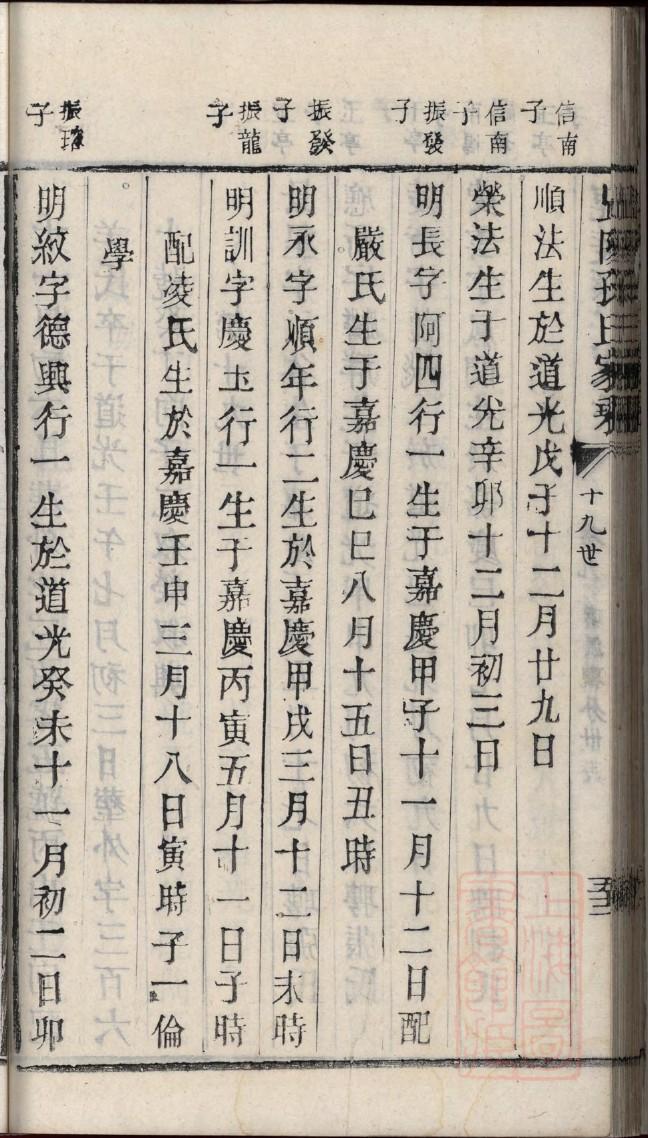 孫氏家乘
十九世
信南子
順法生於道光戊子十二月廿九日
信南子
榮法生于道光辛卯十二月初三日
振發子
明長字阿四行一生于嘉慶甲子十一月十二日配
嚴氏生于嘉慶己巳八月十五日丑時
振發子
明永字順年行二生於嘉慶甲戌三月十二日未時
振龍子
明訓字慶玉行一生于嘉慶丙寅五月十一日子時
配凌氏生於嘉慶壬申三月十八日寅時子一倫
學
振瑹子
明紋字德興行一生於道光癸未十一月初二日卯